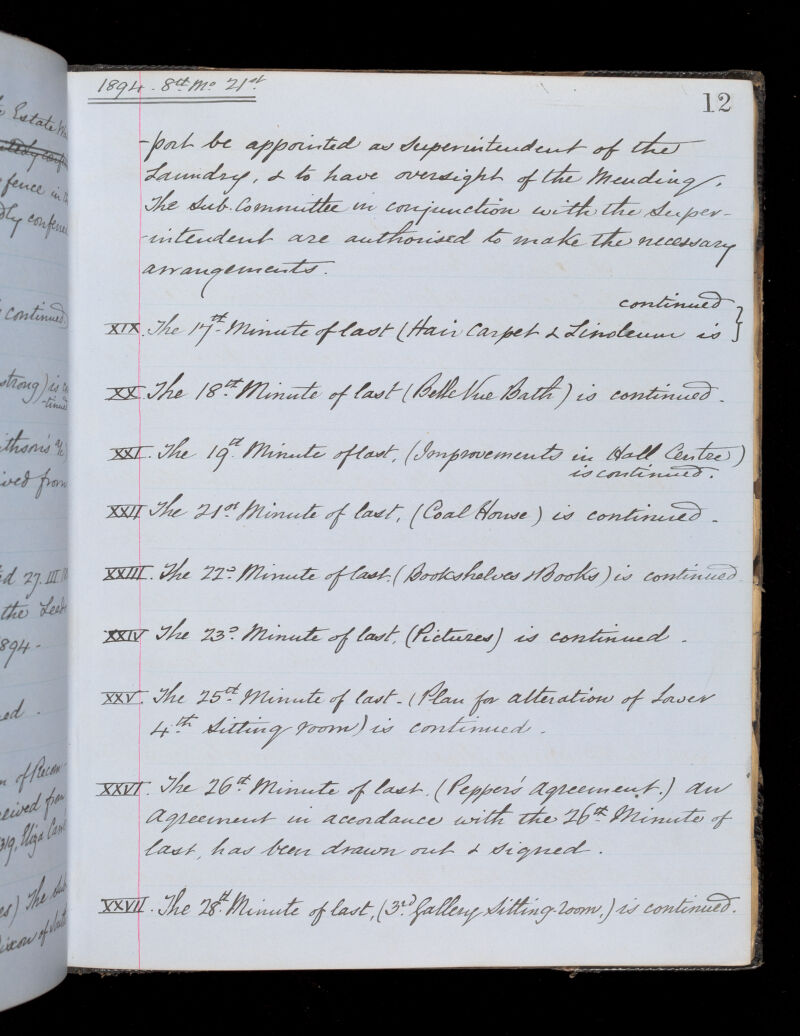 to Estate
fence in
confere
continued
strong) is
-tinued
ithson's a/c
ived from
ed 27. III
the Leeds
894 -
ed .
of Recom-
eived from
319, Eliza
es) The Sub
1894. 8th Mo 21st
12
-port be appointed as Superintendent of the
Laundry, & to have oversight of the Mending.
The Sub. Committee in conjunction with the Super-
-intendent are authorised to make the necessary
arrangements.
continued
XIX. The 17th Minute of last (Hair Carpet & Linoleum is }
XX The 18th Minute of last (Belle Vue Bath) is continued.
XXI. The 19th Minute of last, (Improvements in Hall Centre)
is continued.
XXII The 21st Minute of last, (Coal House) is continued.
XXIII. The 22d Minute of last. (Bookshelves & Books) is continued
XXIV The 23d Minute of last, (Pictures) is continued.
XXV. The 25th Minute of last - (Plan for alteration of Lower
4th Sitting room) is continued.
XXVI. The 26th Minute of last. (Pepper's Agreement.) An
Agreement in accordance with the 26th Minute of
last, has been drawn out & signed.
XXVII. The 28th Minute of last, (3rd Gallery Sitting-room,) is continued.